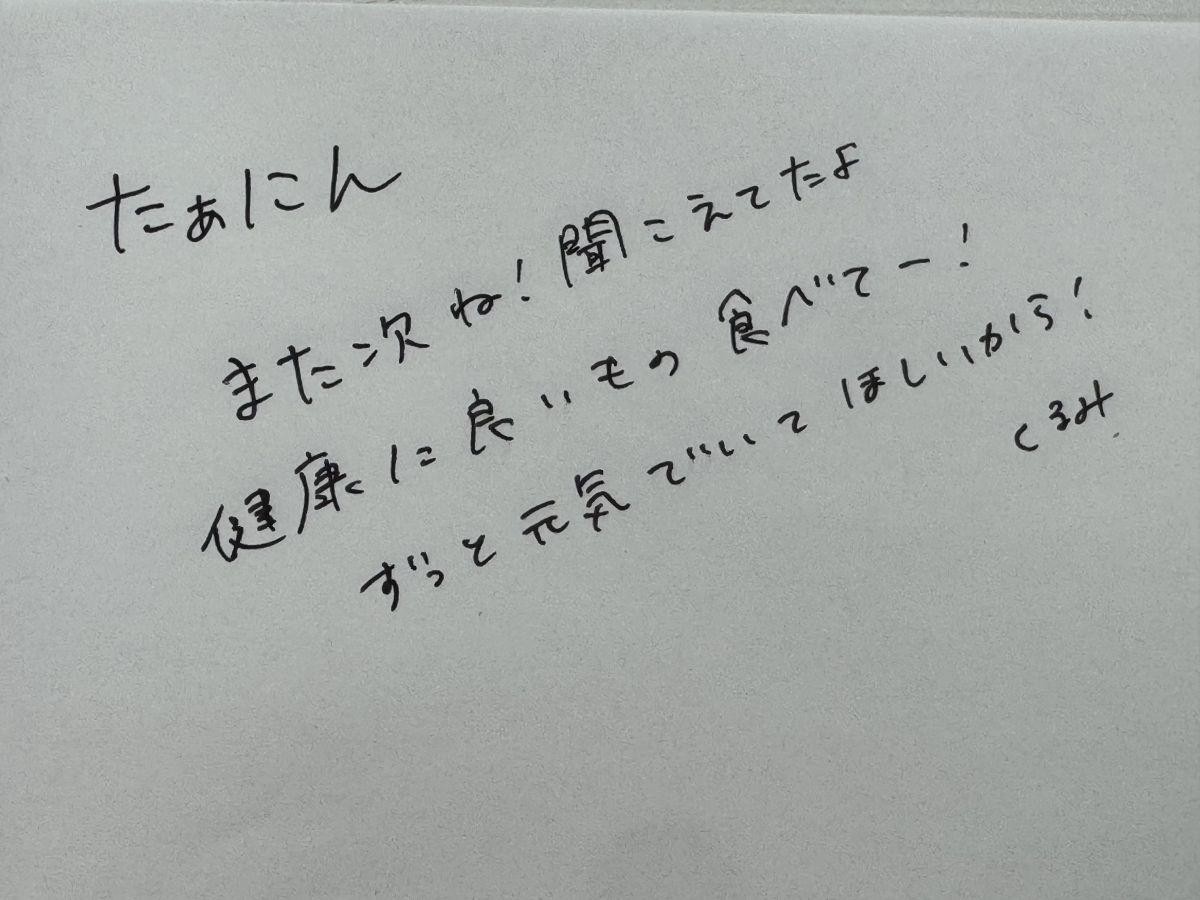 たぁにん
また次ね!聞こえてたよ
健康に良いもの食べてー!
ずっと元気でいてほしいから!
くるみ